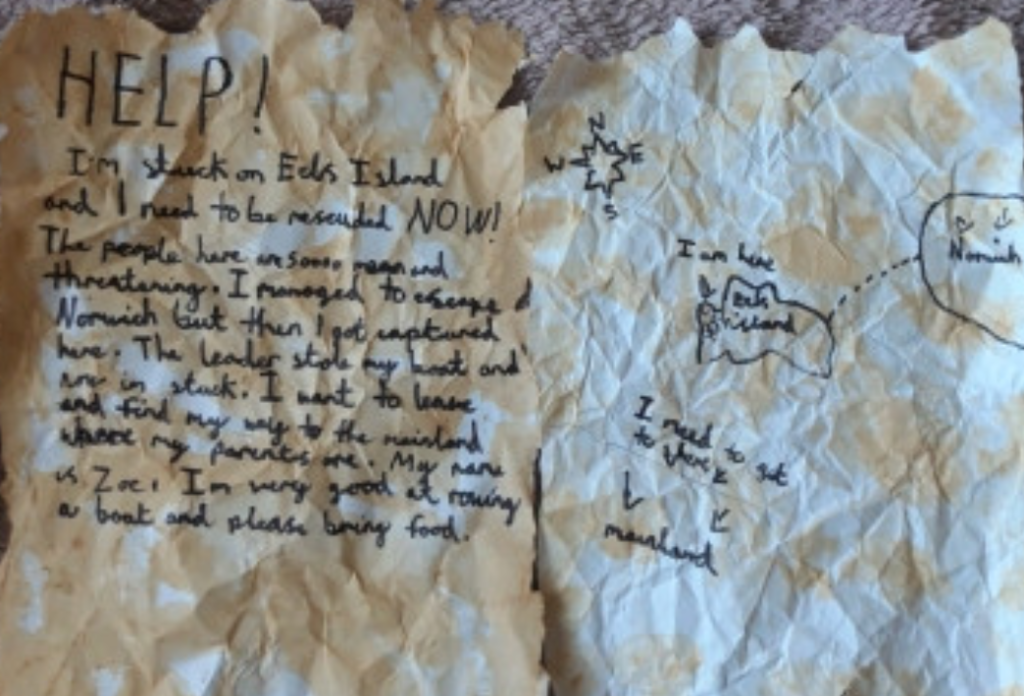 HELP!
I'm stuck on Ecks Island
and I need to be rescuded NOW!
The people here are soooo mean and
threatening. I managed to escape
Norwich but then I got captured
here. The leader stole my boat and
now im stuck. I want to leave
and find my way to the mainland
where my parents are. My name
is Zoe. I'm very good at rowing
a boat and please bring food.
N
W
E
S
I am here
Ecks
island
Norwich
I need to get
to there
mainland